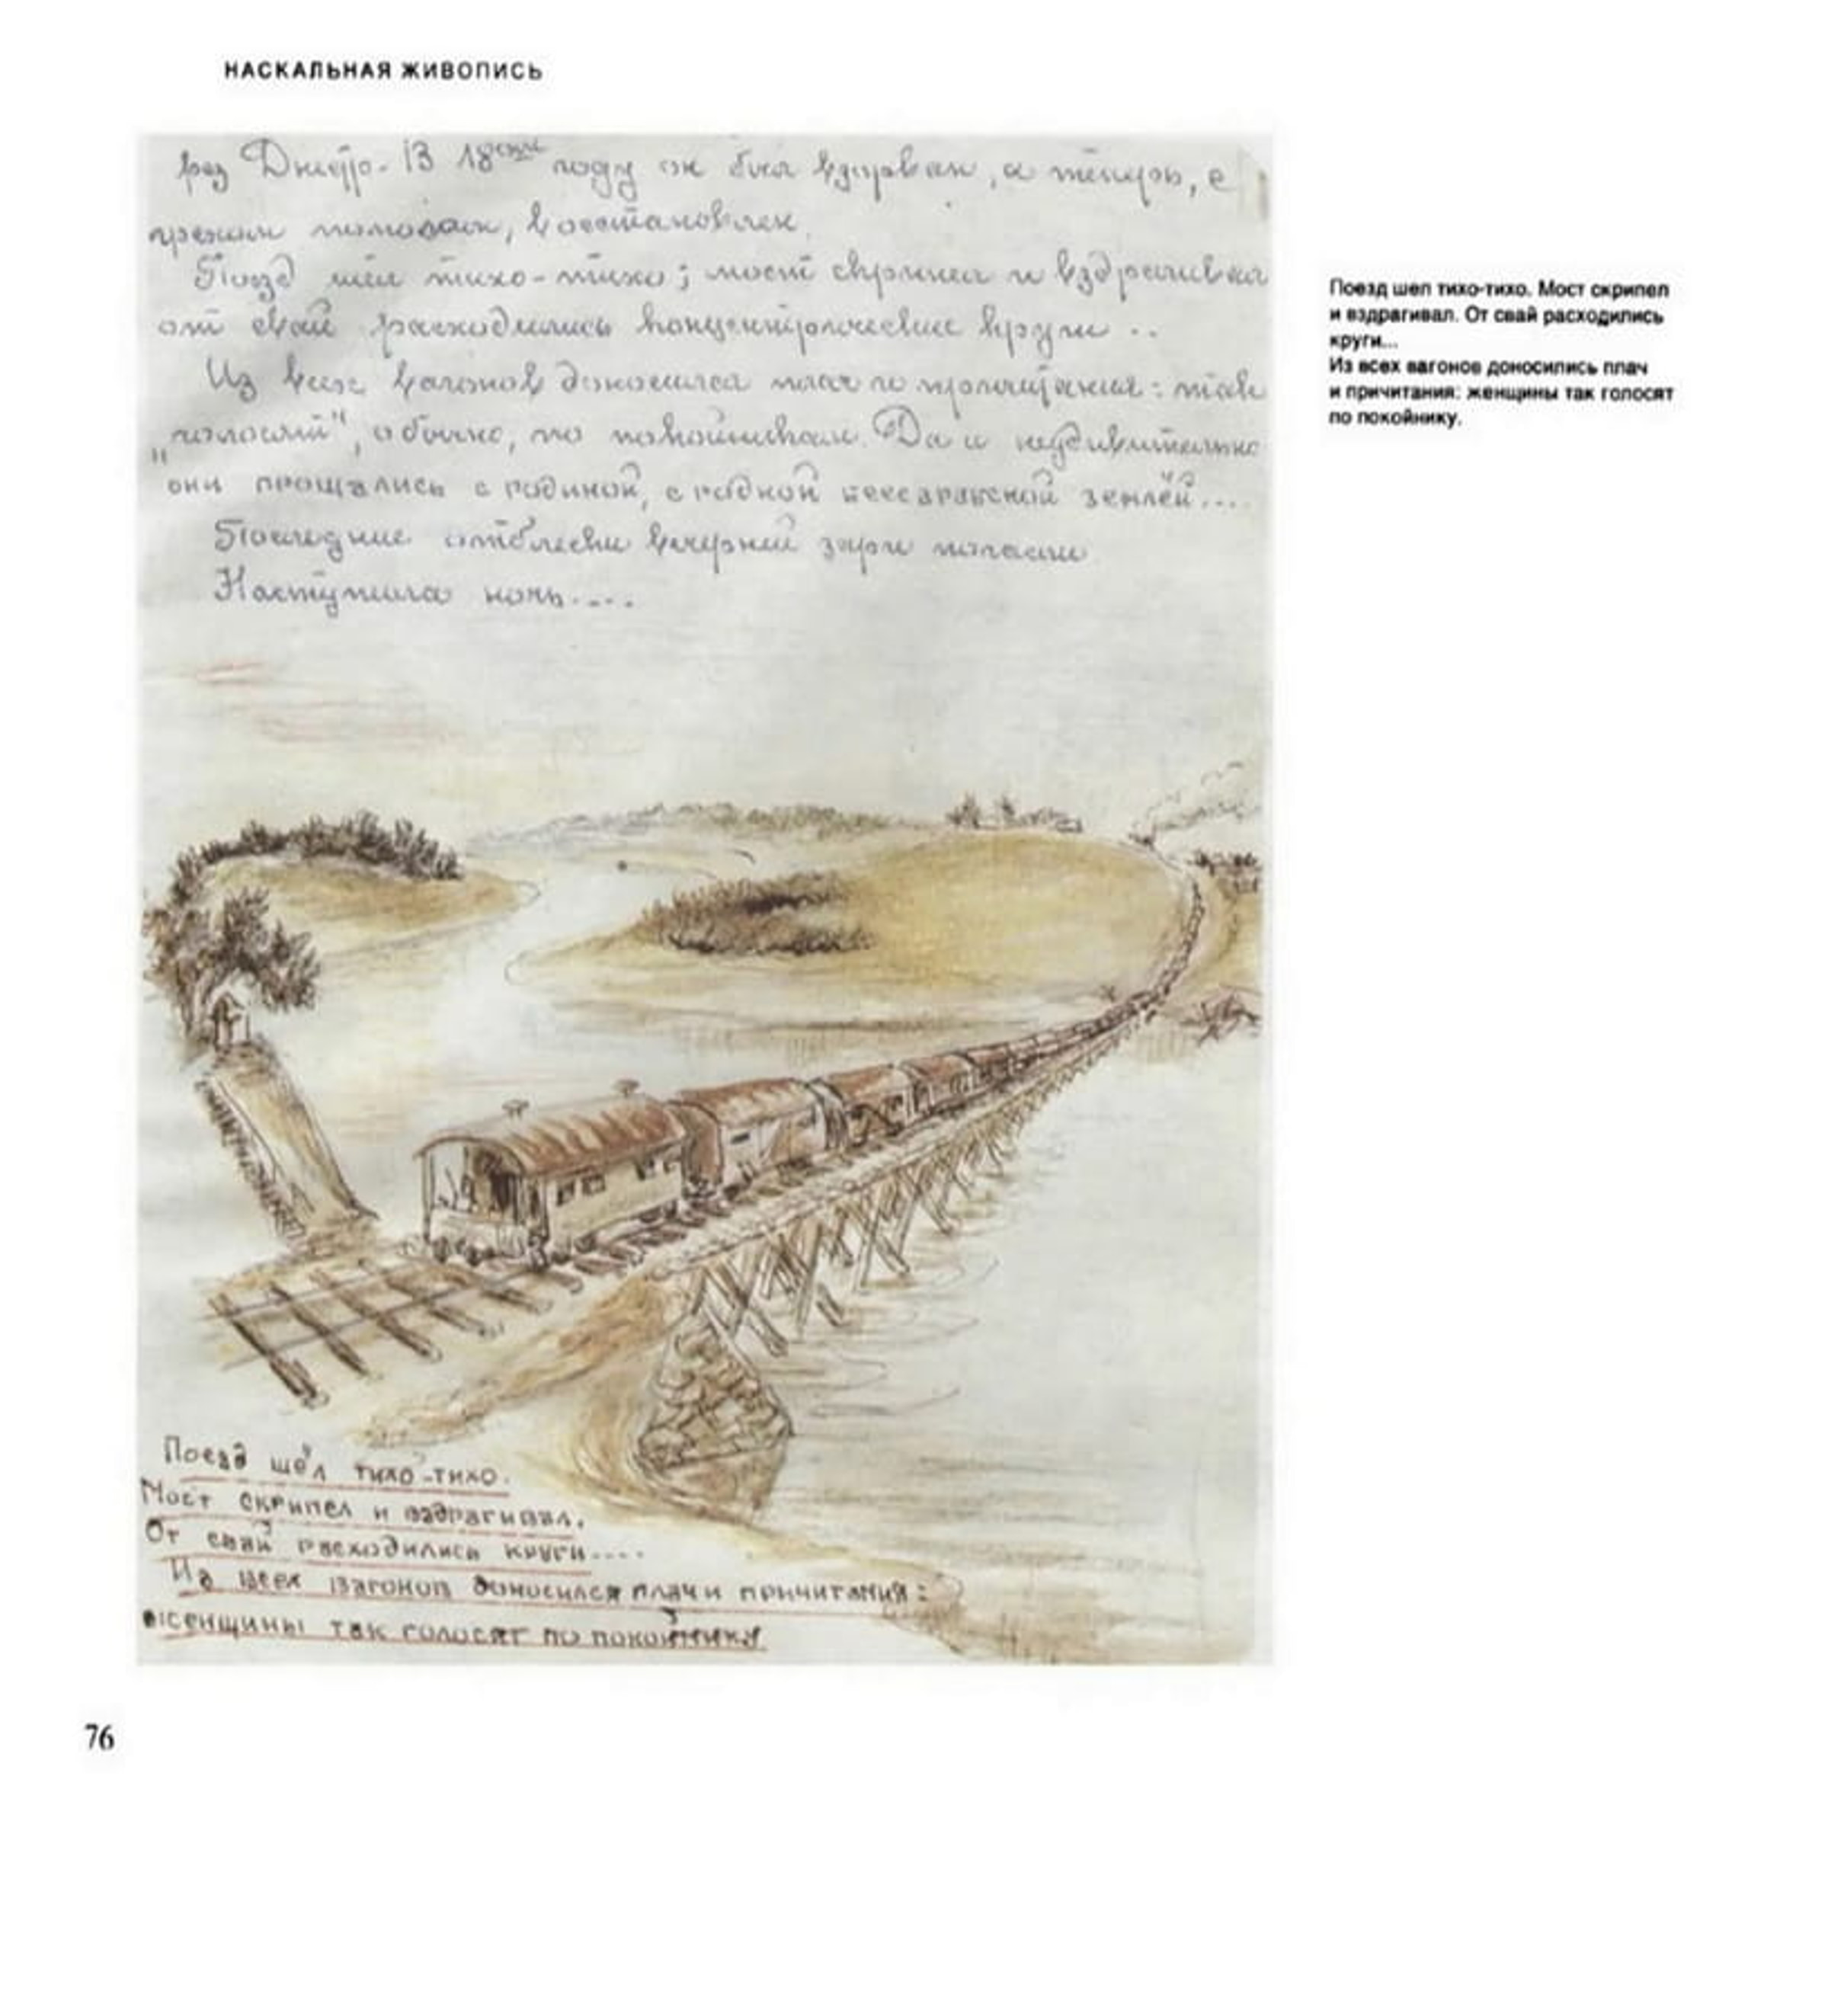 НАСКАЛЬНАЯ ЖИВОПИСЬ
рез Днепр. В 18ом году он был взорван, а теперь, с
грехом пополам, восстановлен.
Поезд шёл тихо-тихо; мост скрипел и вздрагивал
от свай расходились концентрические круги..
Из всех вагонов доносился плач и причитания: так
„голосят", обычно, по покойникам. Да и неудивительно
они прощались с родиной, с родной бессарабской землёй....
Последние отблески вечерней зари погасли
Наступила ночь....
Поезд шёл тихо-тихо.
Мост скрипел и вздрагивал.
От свай расходились круги....
Из всех вагонов доносился плач и причитания:
женщины так голосят по покойнику
Поезд шел тихо-тихо. Мост скрипел
и вздрагивал. От свай расходились
круги...
Из всех вагонов доносились плач
и причитания: женщины так голосят
по покойнику.
76